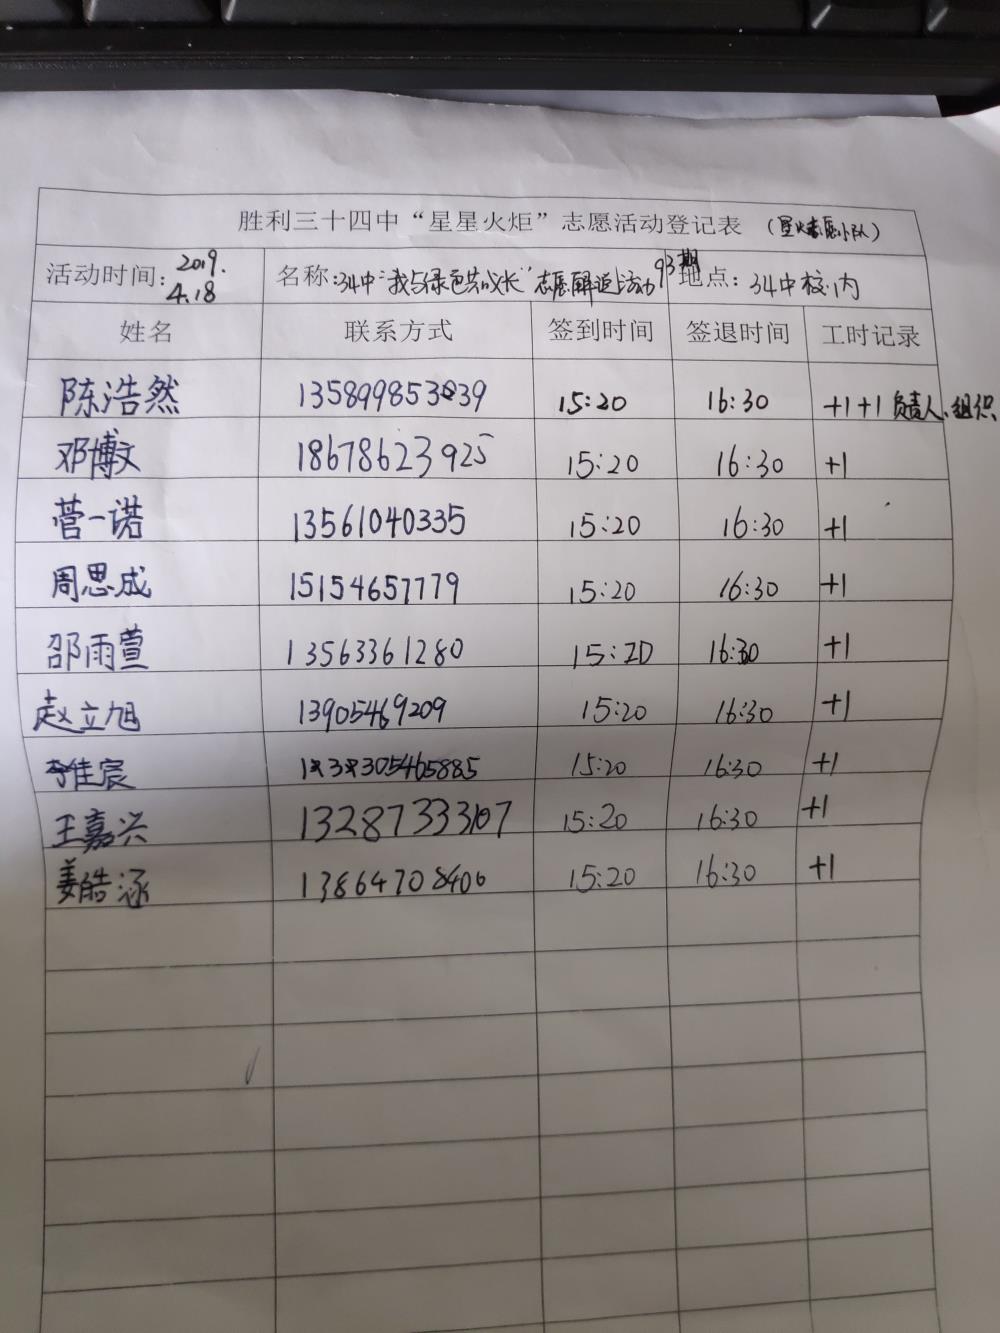 胜利三十四中“星星火炬”志愿活动登记表 (星火志愿小队)
活动时间: 2019. 4.18 名称: 34中“我与绿色共成长”志愿 活动93期 地点: 34中校内
姓名 联系方式 签到时间 签退时间 工时记录
陈浩然 15:20 16:30 +1+1 负责人、组织
邓博文 18678623925 15:20 16:30 +1
菅一诺 13561040335 15:20 16:30 +1
周思成 15154657779 15:20 16:30 +1
邵雨萱 13563361280 15:20 16:30 +1
赵立旭 13905469209 15:20 16:30 +1
李佳宸 15:20 16:30 +1
王嘉兴 13287333107 15:20 16:30 +1
姜皓涵 13864708406 15:20 16:30 +1